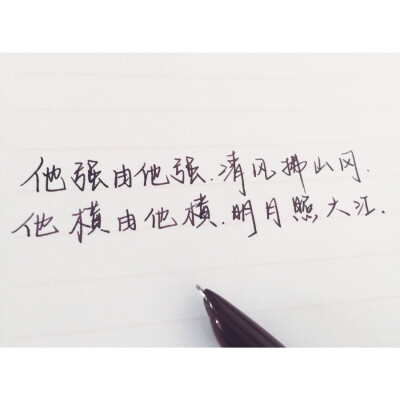 他强由他强.清风拂山冈.
他横由他横.明月照大江.